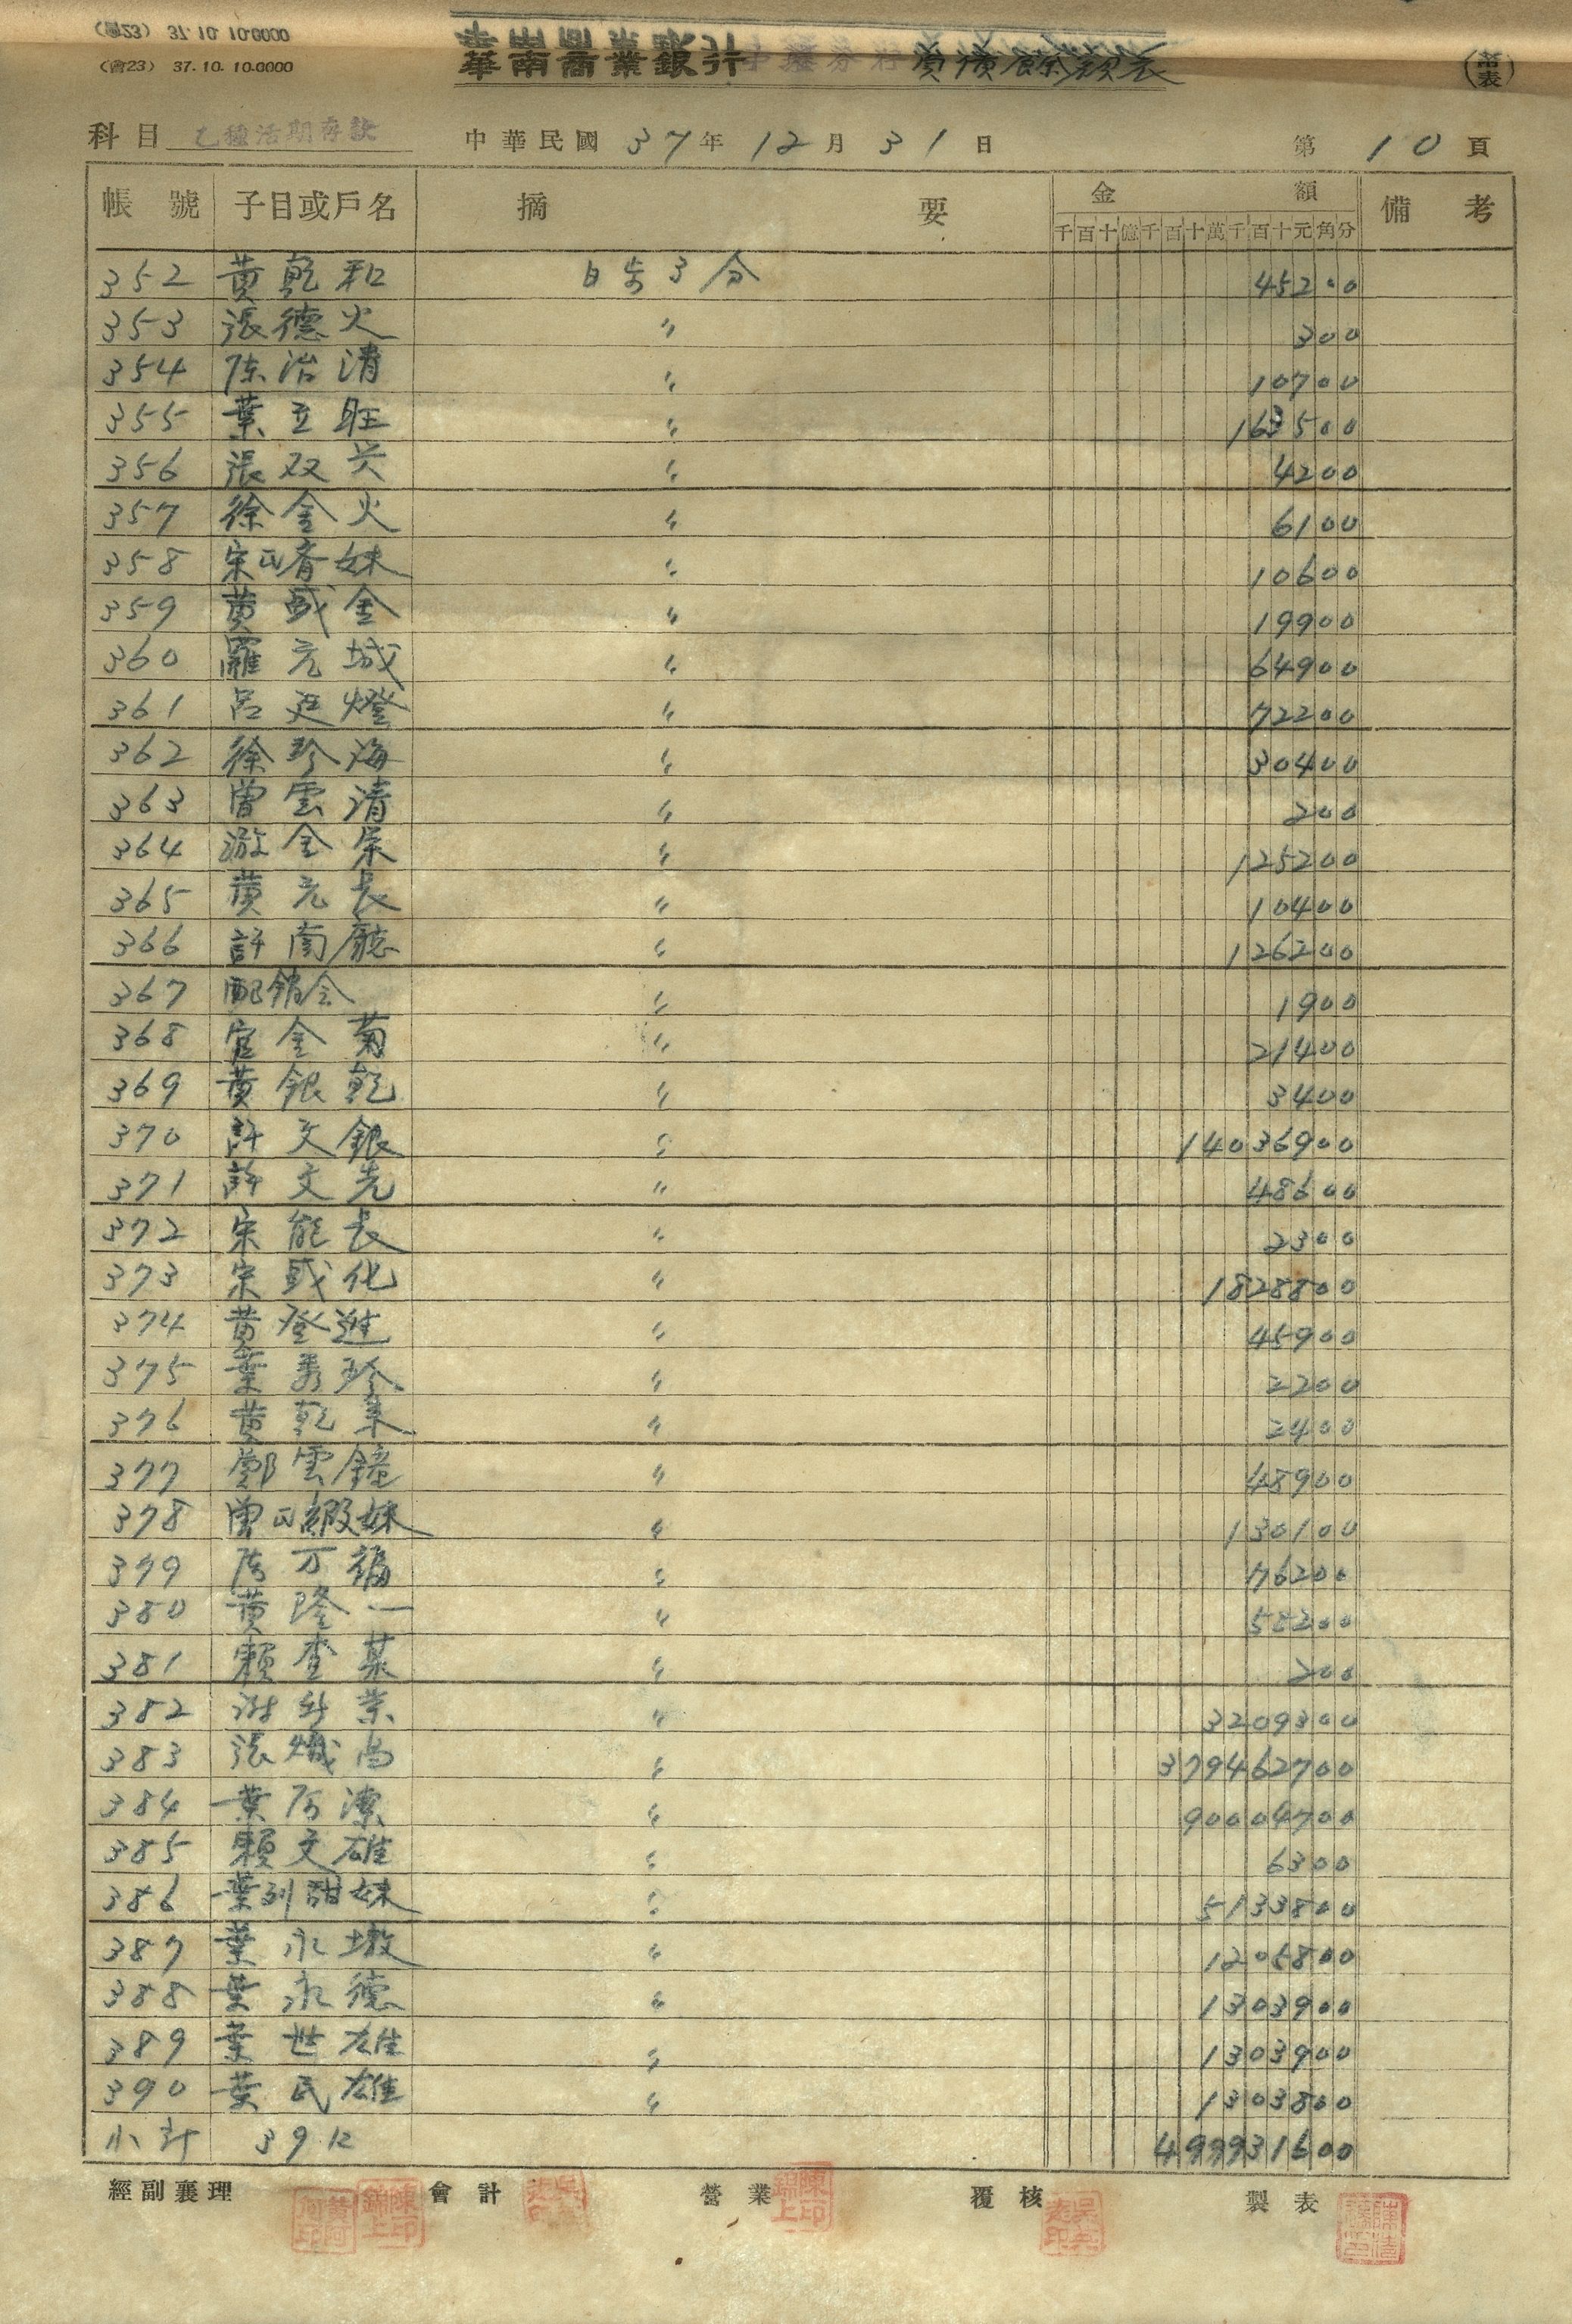 (會23) 37.10.10.0000
華南商業銀行 資債餘額表
科目 乙種活期存款 中華民國 37年 12月 31日 第 10 頁
帳號 子目或戶名 摘要 金額 備考
千百十億千百十萬千百十元角分
352 黃乾和 日步3分 45200
353 張德火 〃 300
354 陈治清 〃 10700
355 葉立旺 〃 163500
356 張双兴 〃 4200
357 徐金火 〃 6100
358 宋氏香妹 〃 10600
359 黃盛金 〃 19900
360 羅元城 〃 64900
361 呂廷燈 〃 72200
362 徐珍海 〃 30400
363 曾雲清 〃 200
364 游金 〃 125200
365 黃元長 〃 10400
366 許南廳 〃 126200
367 配銷会 〃 1900
368 官金菊 〃 21400
369 黃銀乾 〃 3400
370 許文銀 〃 14036900
371 許文先 〃 48600
372 宋能長 〃 2300
373 宋盛化 〃 1828800
374 黃登進 〃 45900
375 葉秀珍 〃 2200
376 黃乾 〃 2400
377 鄭雲鐘 〃 48900
378 曾氏緞妹 〃 130100
379 万福 〃 76200
380 黃隆一 〃 58200
381 賴查某 〃 200
382 業 〃 3209300
383 張熾昌 〃 379462700
384 葉 〃 90004700
385 賴文雄 〃 6300
386 葉列甜妹 〃 5133800
387 葉永墩 〃 1205800
388 葉永德 〃 1303900
389 葉世雄 〃 1303900
390 葉民雄 〃 1303800
小計 39口 499931600
經副襄理 會計 營業 覆核 製表